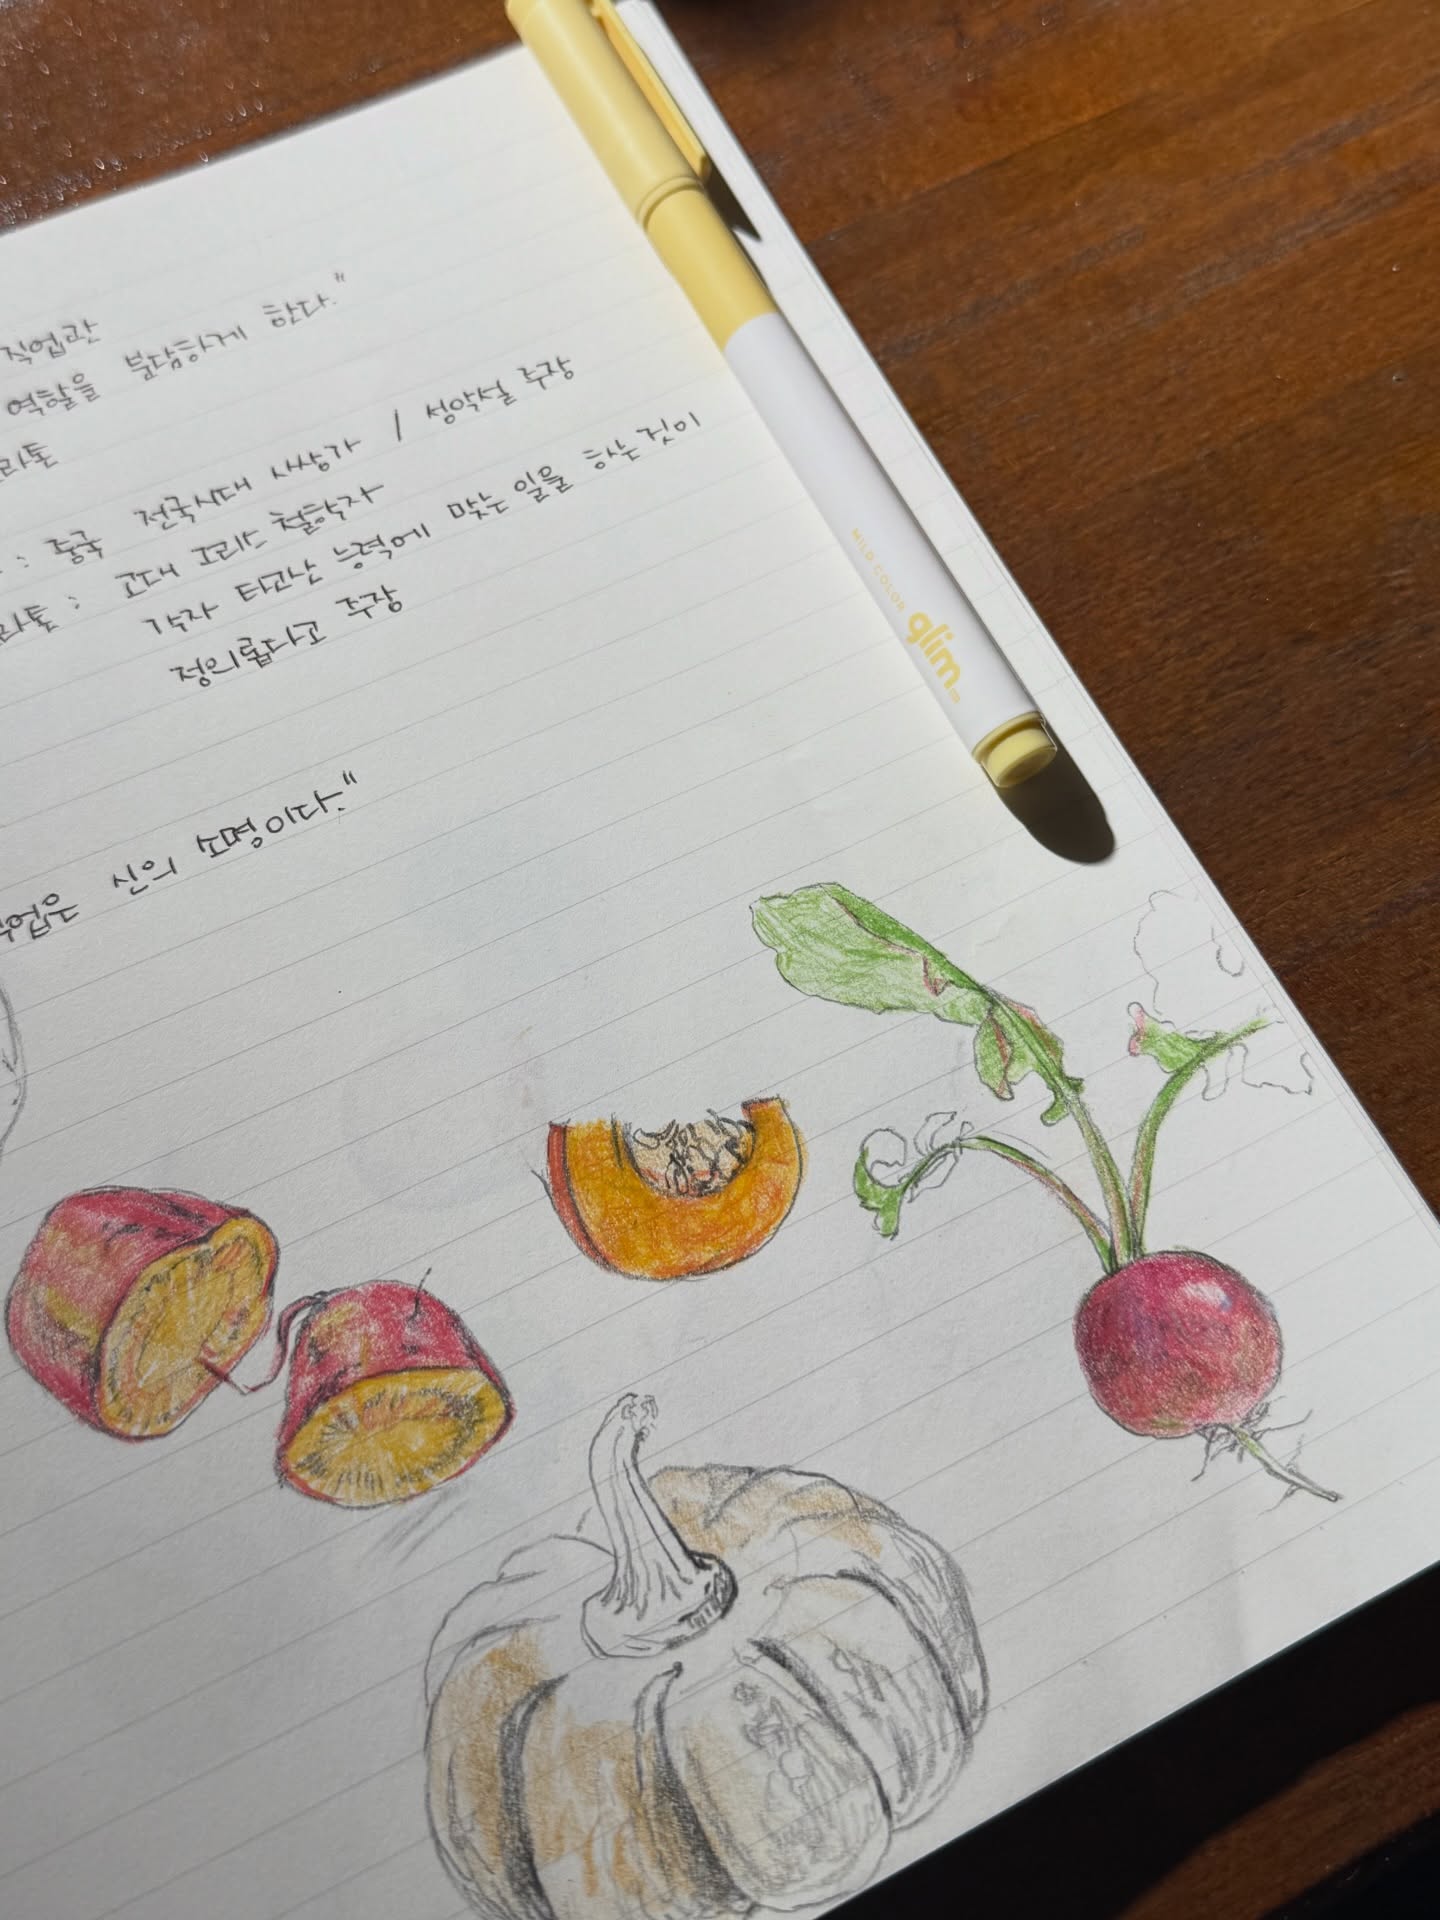 직업관
역할을 분담하게 한다."
라톤
: 중국 전국시대 사상가 / 성악설 주장
라톤 : 고대 그리스 철학자
각자 타고난 능력에 맞는 일을 하는 것이
정의롭다고 주장
직업은 신의 소명이다."
MILD COLOR
glim